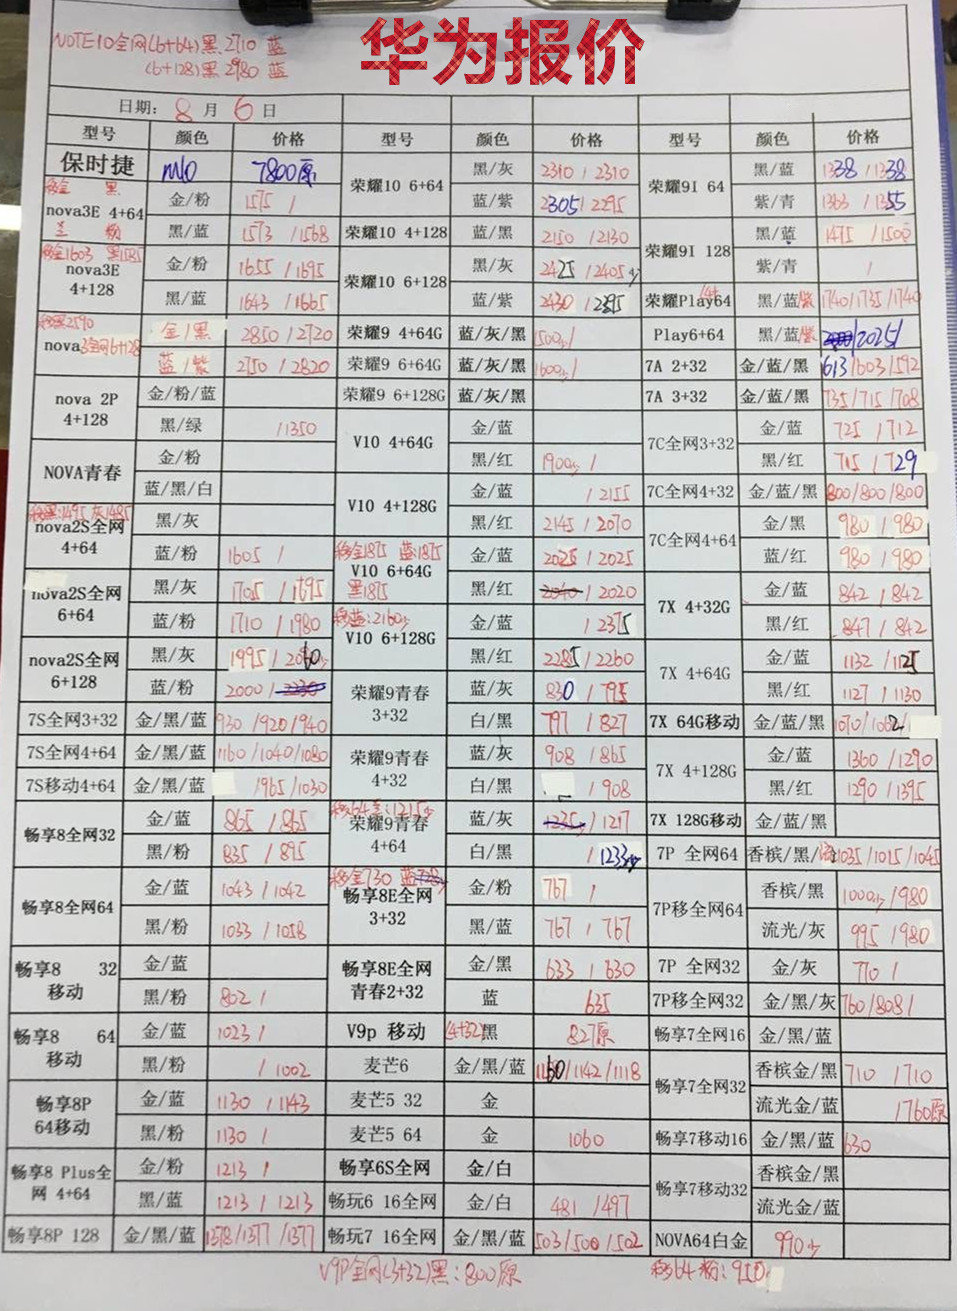 华为报价
NOTE10全网(6+64)黑2710 蓝
(6+128)黑2980 蓝
日期: 8 月 6 日
型号 颜色 价格 型号 颜色 价格 型号 颜色 价格
保时捷 7800原 荣耀10 6+64 黑/灰 2310 / 2310 荣耀9I 64 黑/蓝 1338 / 1338
nova3E 4+64 金/粉 1575 / 蓝/紫 2305 / 2295 紫/青 1363 / 1355
黑/蓝 1573 / 1568 荣耀10 4+128 蓝/黑 2150 / 2130 荣耀9I 128 黑/蓝 1475 / 1500
移金1603 黑1585
nova3E 4+128 金/粉 1655 / 1695 荣耀10 6+128 黑/灰 2425 / 2405少 紫/青 /
黑/蓝 1643 / 1665 蓝/紫 2430 / 2395 荣耀Play64 黑/蓝/紫 1740/1735/1740
移黑2590
nova3全网6+128 金/黑 2850 / 2720 荣耀9 4+64G 蓝/灰/黑 1500少/ Play6+64 黑/蓝/紫 /2025/
蓝/紫 2750 / 2820 荣耀9 6+64G 蓝/灰/黑 1600少/ 7A 2+32 金/蓝/黑 613/603/592
nova 2P 4+128 金/粉/蓝 荣耀9 6+128G 蓝/灰/黑 7A 3+32 金/蓝/黑 735/715/708
黑/绿 /1350 V10 4+64G 金/蓝 7C全网3+32 金/蓝 725 / 712
NOVA青春 金/粉 黑/红 1900少 / 黑/红 715 / 729
蓝/黑/白 V10 4+128G 金/蓝 / 2155 7C全网4+32 金/蓝/黑 800/800/800
移黑:1495 灰1485
nova2S全网 4+64 黑/灰 黑/红 2145 / 2070 7C全网4+64 金/黑 980 / 980
蓝/粉 1605 / 移金1875 蓝:1875 黑1875 V10 6+64G 金/蓝 2025 / 2025 蓝/红 980 / 980
nova2S全网 6+64 黑/灰 1705 / 1695 黑/红 2040 / 2020 7X 4+32G 金/蓝 842 / 842
蓝/粉 1710 / 1980 移蓝:2160少 V10 6+128G 金/蓝 / 2375 黑/红 847 / 842
nova2S全网 6+128 黑/灰 1995 / 黑/红 2285 / 2260 7X 4+64G 金/蓝 1132 / 1125
蓝/粉 2000 / 2230 荣耀9青春 3+32 蓝/灰 830 / 795 黑/红 1127 / 1130
7S全网3+32 金/黑/蓝 930 /920/940 白/黑 797 / 827 7X 64G移动 金/蓝/黑 1070/1062/
7S全网4+64 金/黑/蓝 1160 /1040/1080 荣耀9青春 4+32 蓝/灰 908 / 865 7X 4+128G 金/蓝 1360 /1290
7S移动4+64 金/黑/蓝 /965/1030 白/黑 / 908 黑/红 1290 / 1395
畅享8全网32 金/蓝 865 / 865 移64 蓝:1215少 荣耀9青春 4+64 蓝/灰 1235 / 1217 7X 128G移动 金/蓝/黑
黑/粉 835 / 895 白/黑 / 1233少 7P 全网64 香槟/黑/流 1035/1015/1045
畅享8全网64 金/蓝 1043 / 1042 移金730 蓝 畅享8E全网 3+32 金/粉 767 / 7P移全网64 香槟/黑 1000少/980
黑/粉 1033 / 1058 黑/蓝 767 / 767 流光/灰 995 / 980
畅享8 32 移动 金/蓝 畅享8E全网 青春2+32 金/黑 633 / 630 7P 全网32 金/灰 770 /
黑/粉 802 / 蓝 635 7P移全网32 金/黑/灰 760/808/
畅享8 64 移动 金/蓝 1023 / V9p 移动 (4+32)黑 827原 畅享7全网16 金/黑/蓝
黑/粉 / 1002 麦芒6 金/黑/蓝 1160/1142/1118 畅享7全网32 香槟金/黑 710 / 710
畅享8P 64移动 金/蓝 1130 / 1143 麦芒5 32 金 流光金/蓝 1760原
黑/粉 1130 / 麦芒5 64 金 1060 畅享7移动16 金/黑/蓝 630
畅享8 Plus全网 4+64 金/粉 1213 / 畅享6S全网 金/白 畅享7移动32 香槟金/黑
黑/蓝 1213 / 1213 畅玩6 16全网 金/白 481 / 497 流光金/蓝
畅享8P 128 金/黑/蓝 1378/1377 /1377 畅玩7 16全网 金/黑/蓝 503/500 /502 NOVA64白金 990少
V9P全网(3+32)黑:800原 移64粉:910